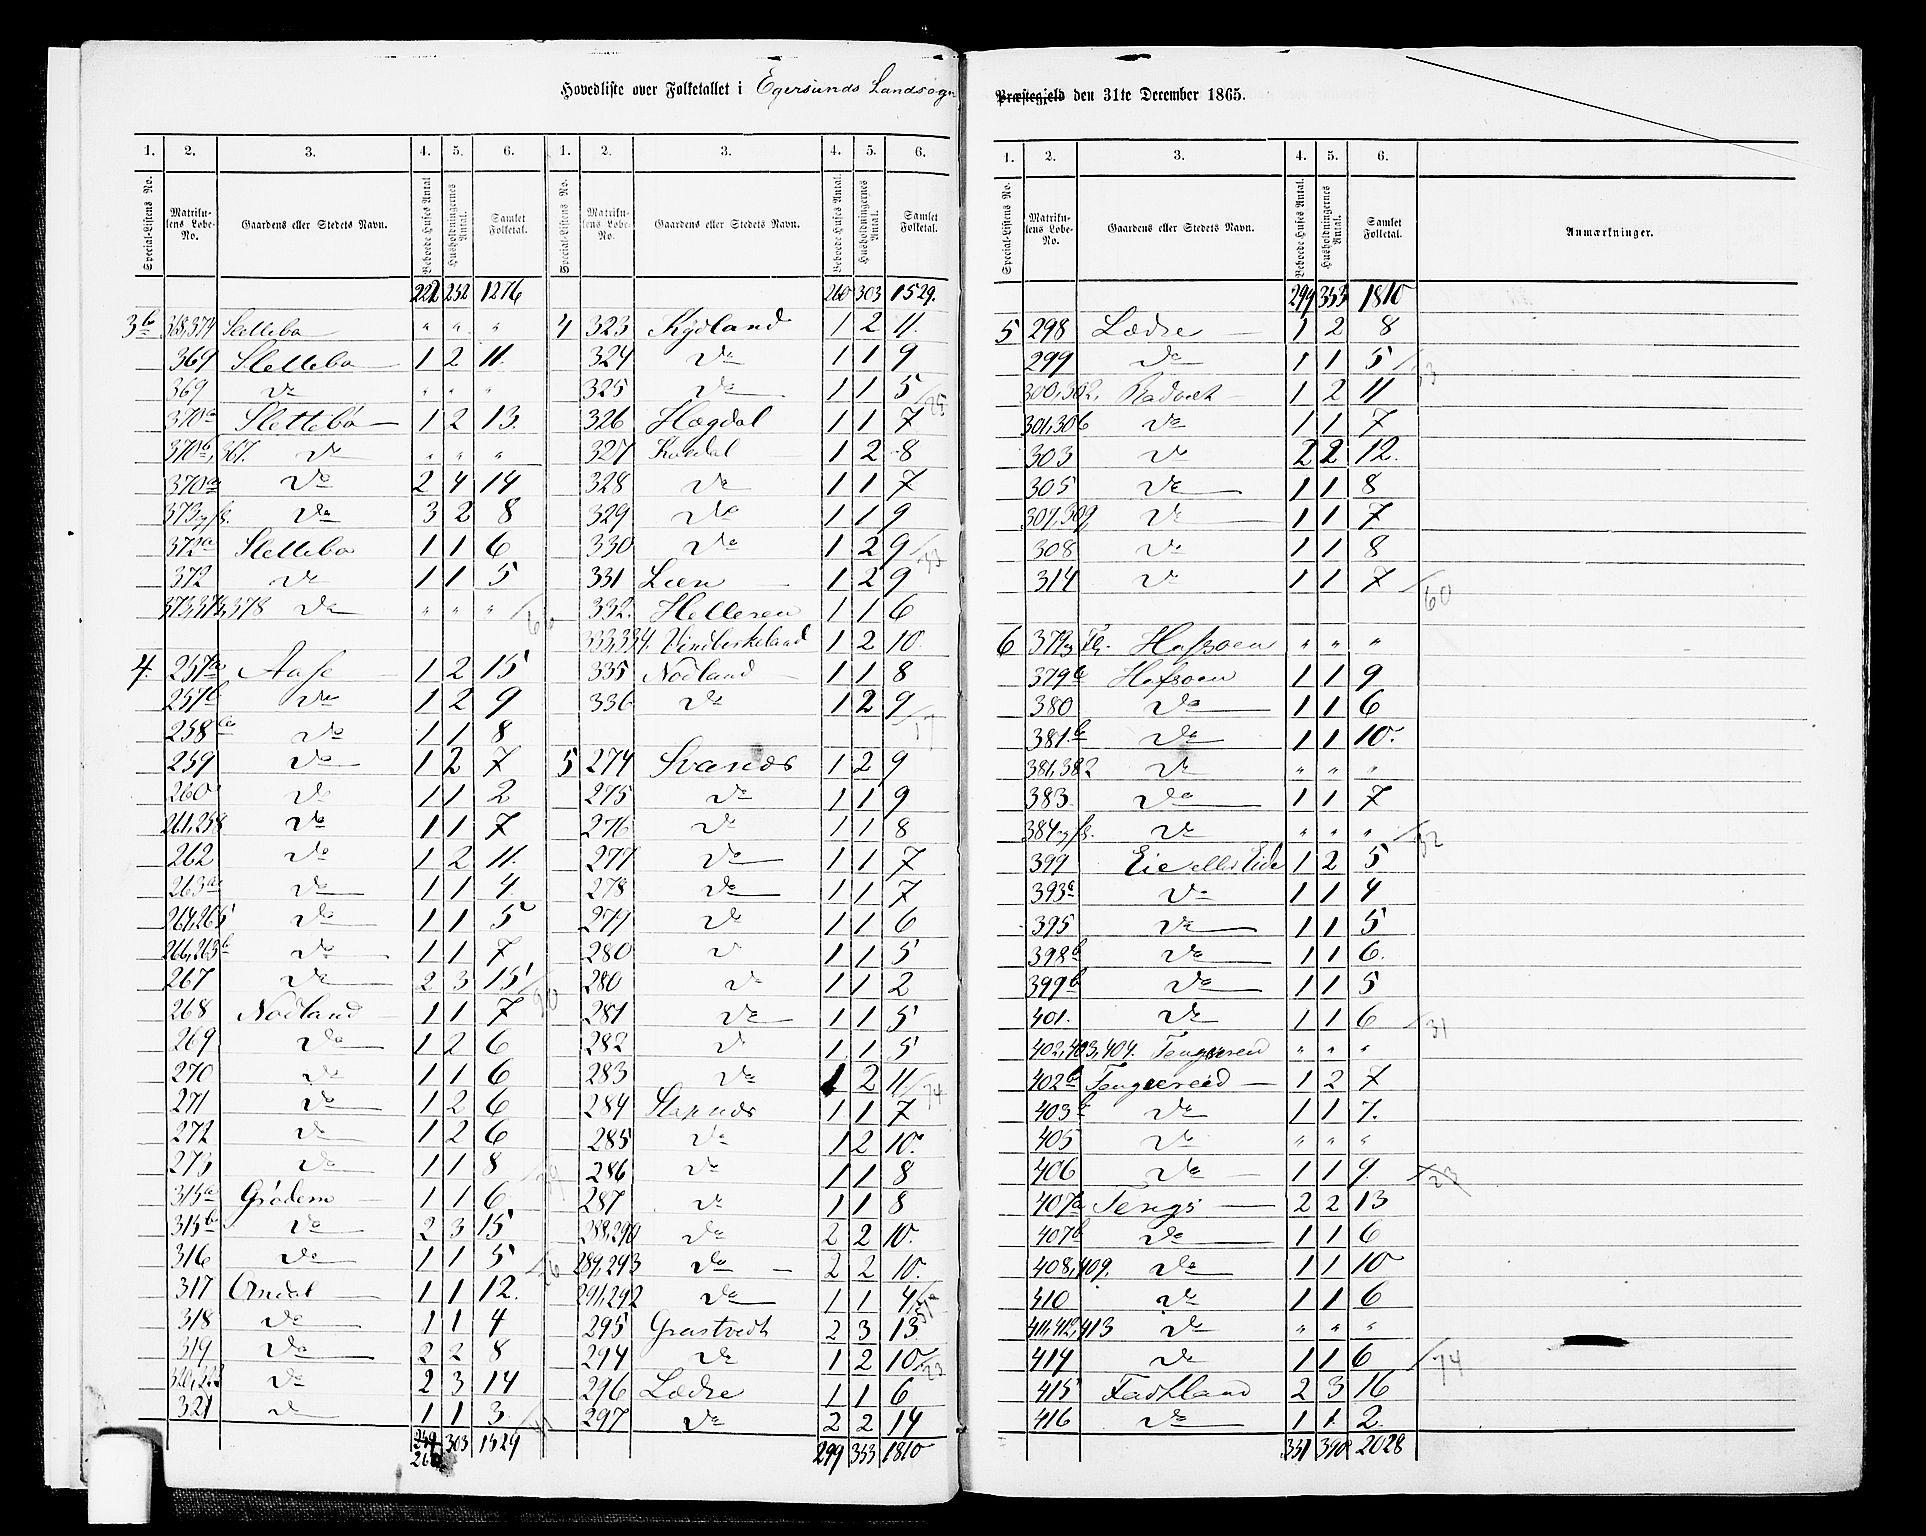 Hovedliste over Folketallet i Egersunds Landsogn
1. 2. 3. 4. 5. 6. 1. 2. 3. 4. 5. 6.
Special-Listens No. Matriku-lens Løbe-No. Gaardens eller Stedets Navn. Beboede Huses Antal Husholdningernes Antal. Samlet Folketal. Special-Listens No. Matriku-lens Løbe-No. Gaardens eller Stedets Navn. Beboede Huses Antal. Husholdningernes Antal. Samlet Folketal.
221 252 1276
3b 368.374 Slettebø " " "
369 Slettebø 1 2 11.
369 Do " " "
370a Slettebø 1 2 13.
370b, 367. Do " " "
370a Do 2 4 14
373 Do 3 2 8
372a Slettebo 1 1 6
372 Do 1 1 5
373,376,378 Do " " " /66
4. 257a Aase 1 2 15
257b Do 1 2 9
258a Do 1 1 8
259 Do 1 2 7
260 Do 1 1 2
261,258 Do 1 1 7
262 Do 1 2 11.
263a Do 1 1 4.
264,265 Do 1 1 5
266,263b Do 1 1 7
267 Do 2 3 15 /90
268 Nodland 1 1 7
269 Do 1 2 6
270 Do 1 1 6
271 Do 1 2 6
272 Do 1 2 6
273 Do 1 1 8 /39
315a Grødem 1 1 6
315b Do 2 3 15
316 Do 1 1 5 /26
317 Orrdal 1 1 12.
318 Do 1 1 4
319 Do 2 2 8
320,322 Do 2 3 14
321 Do 1 1 3 /41
259 303 1529
260
260 303 1529.
4 323 Kydland 1 2 11.
324 Do 1 1 9
325 Do 1 1 5 /25
326 Hægdal 1 1 7
327 Kordal 1 2 8
328 Do 1 1 7
329 Do 1 1 9
330 Do 1 2 9 /33
331 Læn 1 2 9
332. Helleren 1 1 6
333,334. Vindleskeland 1 2 10.
335 Nodland 1 1 8
336 Do 1 2 9 /17
5 274 Svanæs 1 2 9
275 Do 1 1 9
276 Do 1 1 8
277 Do 1 1 7
278 Do 1 1 7
277 Do 1 1 6
280 D 1 1 5
280 Do 1 1 2
281 Do 1 1 5
282 D 1 1 5
283 Do 1 2 11 /74
284 Stapnæs 1 1 7
285 Do 1 2 10.
286 Do 1 1 8
287 Do 1 1 8
288,290 Do 2 2 10.
289,293 Do 2 2 10.
291,292 Do 1 1 4 /57
295 Grastvedt 2 3 13
294 Do 1 2 10 /23
296 Lædre 1 1 6
297 Do 2 2 14
299 353 1810
Præstegjeld den 31te December 1865.
1. 2. 3. 4. 5. 6.
Special-Listens No. Matriku-lens Løbe-No. Gaardens eller Stedets Navn. Beboede Huses Antal. Husholdningernes Antal. Samlet Folketal. Anmærkninger.
299 353 1810
5 298 Lædre 1 2 8
299 Do 1 1 5 /33
300,302, Rødvet 1 2 11
301,306 Do 1 1 7
303 Do 2 2 12.
305 Do 1 1 8
307,309, Do 1 1 7
308 Do 1 1 8
314 Do 1 1 7 /60
6 379 Fl. Hafsøen " " "
379a Hafsøen 1 1 9
380 Do 1 1 6
381.b Do 1 1 10.
381,382 Do " " "
383 Do 1 1 7
384 Do " " " /32
399 Eie eller Eide 1 2 5
393a Do 1 1 4
395 Do 1 1 5
398b Do 1 1 6.
399b Do 1 1 5
401. Do 1 1 6 /31
402,403,404. Tengesreid " " "
402b Tengesreid 1 2 7
403a Do 1 1 7.
405 Do " " "
406 Do 1 1 9. /23
407a Tengs 2 2 13
407b Do 1 1 6
408,409. Do 1 1 10
410 Do 1 1 6
411,412,413 Do " " "
414 Do 1 1 6 /74
415 Fadtland 2 3 16
416 Do 1 1 2
331 390 2028